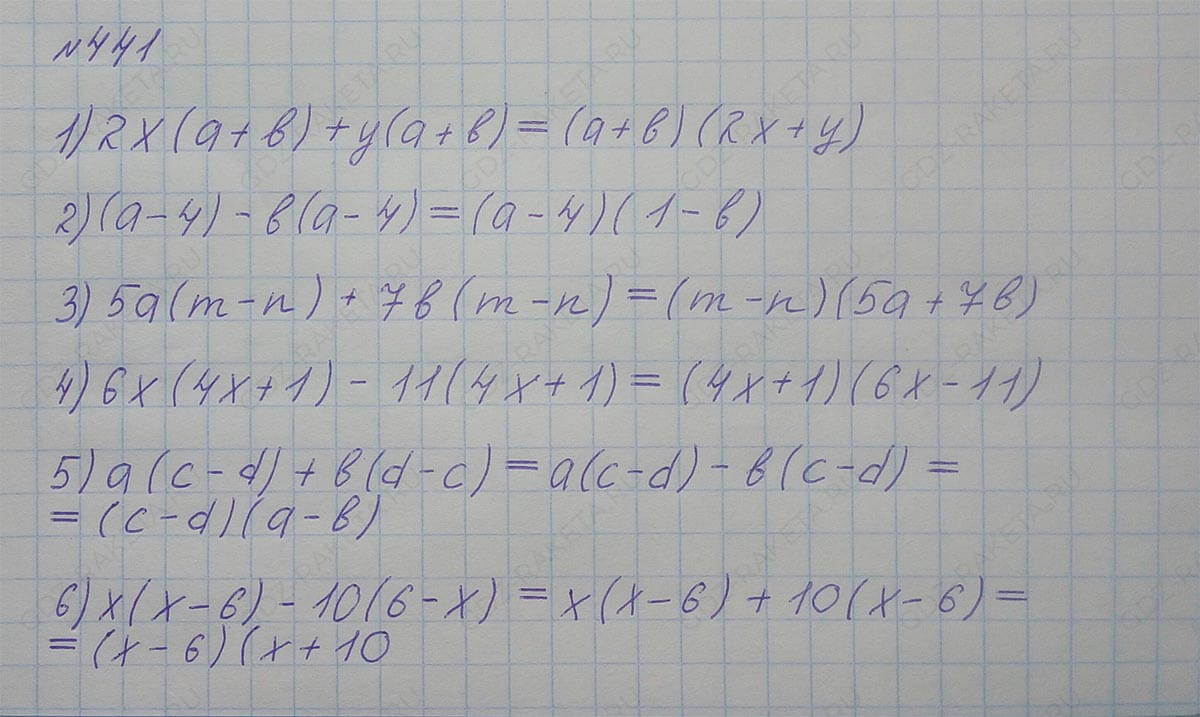 №441
1) 2x(a+в)+y(a+в)=(a+в)(2x+y)
2) (a-4)-в(a-4)=(a-4)(1-в)
3) 5a(m-n)+7в(m-n)=(m-n)(5a+7в)
4) 6x(4x+1)-11(4x+1)=(4x+1)(6x-11)
5) a(c-d)+в(d-c)=a(c-d)-в(c-d)=
=(c-d)(a-в)
6) x(x-6)-10(6-x)=x(x-6)+10(x-6)=
=(x-6)(x+10
GDZ-RAKETA.RU